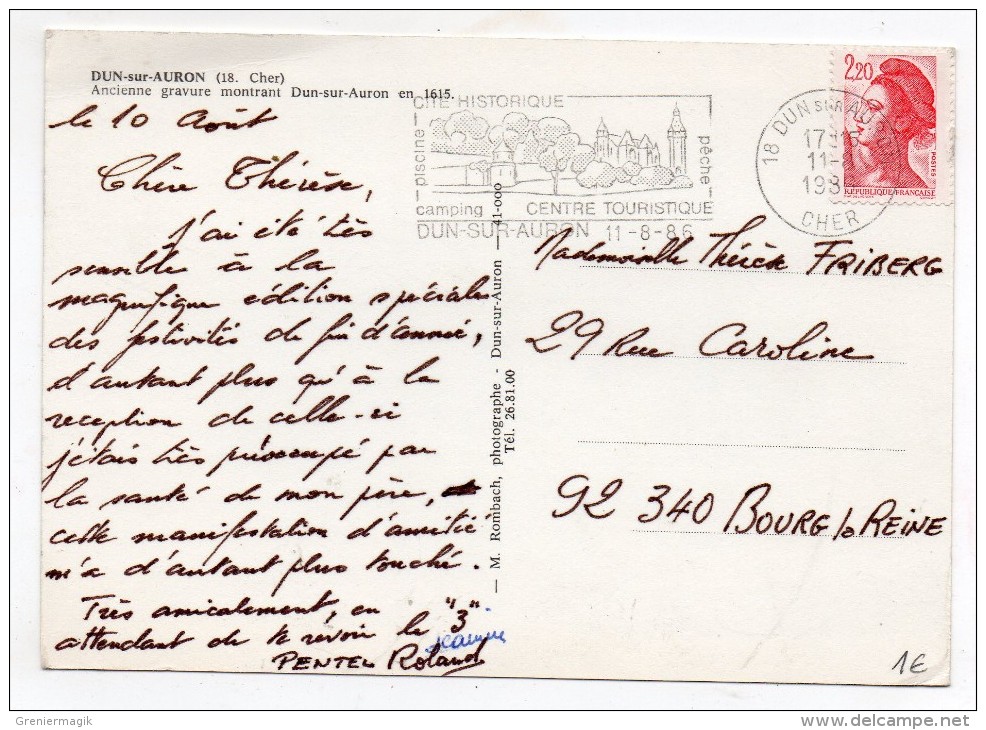 DUN-sur-AURON (18. Cher)
Ancienne gravure montrant Dun-sur-Auron en 1615.
le 10 Août
Chère Thérèse,
J'ai été très
sensible à la
magnifique édition spéciale
des festivités de fin d'année,
d'autant plus qu'à la
reception de celle-ci
j'étais très préoccupé par
la santé de mon père,
cette manifestation d'amitié
m'a d'autant plus touché.
Très amicalement, en
attendant de te revoir le "3"
PENTEL Roland
— M. Rombach, photographe - Dun-sur-Auron — 41-000
Tél. 26.81.00
CITÉ HISTORIQUE
piscine
pêche
camping CENTRE TOURISTIQUE
DUN-SUR-AURON 11-8-86
18 DUN SUR AURON
CHER
2,20
POSTES
REPUBLIQUE FRANÇAISE
Mademoiselle Thérèse FRIBERG
29 Rue Caroline
92 340 BOURG la REINE
1€
Greniermagik
www.delcampe.net